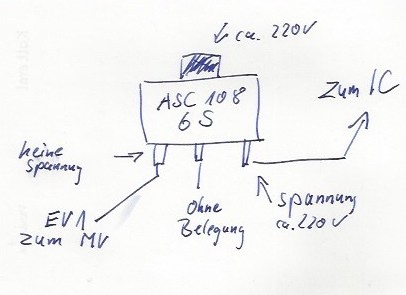 ca. 220V
ASC 108
6S
zum IC
keine
Spannung
EV1
zum MV
Ohne
Belegung
Spannung
ca. 220V